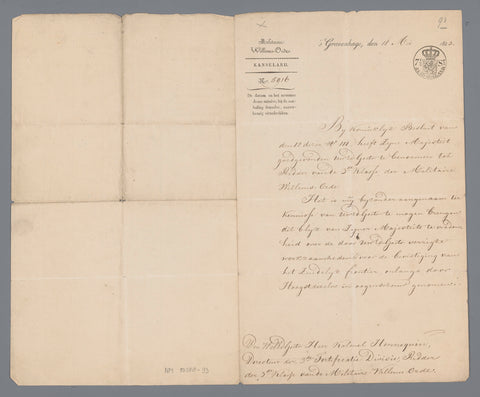 93
Militaire
Willems-Orde
's Gravenhage, den 11 Mei
KANSELARIJ.
No. 5016
De datum en het nommer
dezer missive, bij de aan-
haling derzelve, nauw-
keurig uittedrukken.
Bij Koninklijk Besluit van
den 10 dezer No. 111 heeft Zijne Majesteit
goedgevonden UwEdGest te benoemen tot
Ridder van de 3e Klasse der Militaire
Willems-Orde
Het is mij bijzonder aangenaam ter
kennisse van UwEdGest te mogen brengen
dit blijk van Zijner Majesteits te vreden-
heid over de door UwEdGest verrigte
werkzaamheden over de bevestiging van
het Zuidelijk frontier onlangs door
Hoogstdezelve in oogenschouw genomen.
Den WelEdGeste Heer Kolonel Hennequin,
Directeur der 3de Fortificatie Divisie, Ridder
der 3e Klasse van de Militaire Willems Orde.
NM 10388-93